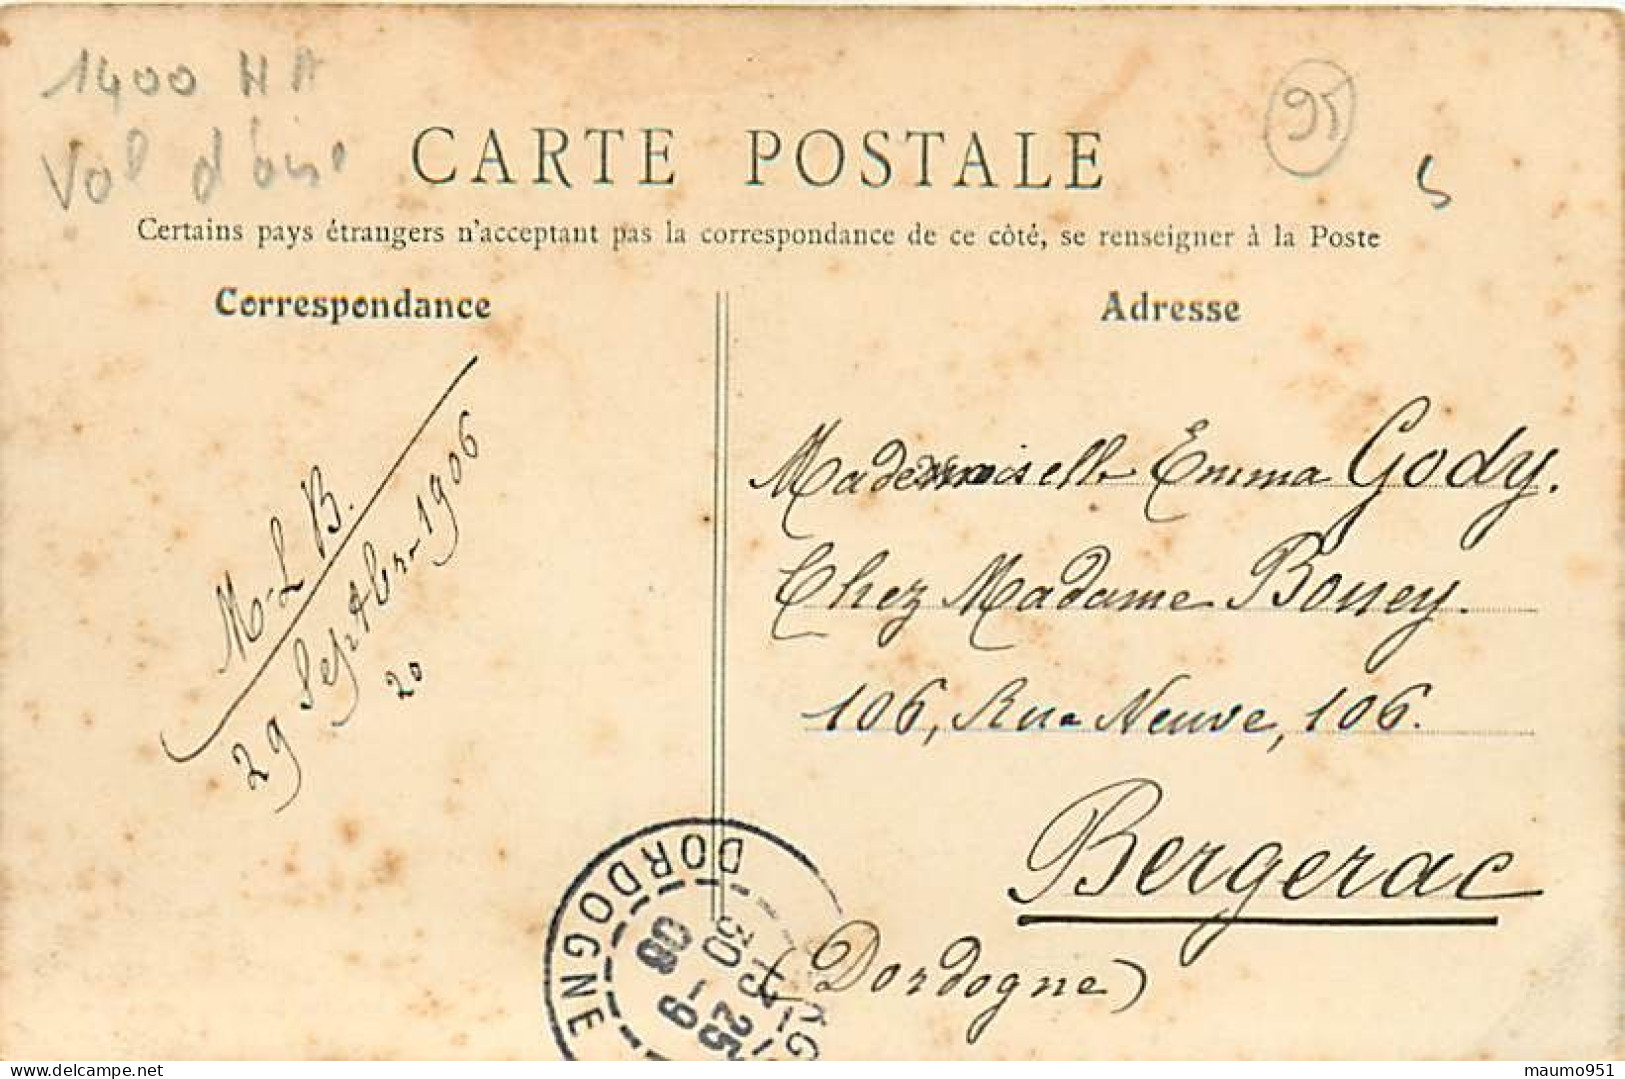 1400 HA
Val d'oise
95
5
CARTE POSTALE
Certains pays étrangers n'acceptant pas la correspondance de ce côté, se renseigner à la Poste
Correspondance
M-L B.
29 Septbre 1906
20
Adresse
Mademoiselle Emma Gody.
Chez Madame Bouey.
106, Rue Neuve, 106.
Bergerac
(Dordogne)
DORDOGNE
15 25
30 - 9
06
delcampe.net
maumo951